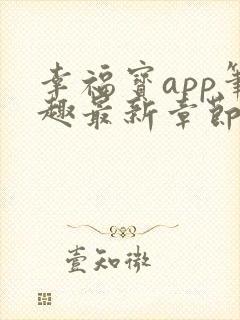 幸福宝app笔
趣最新章节
壹知微